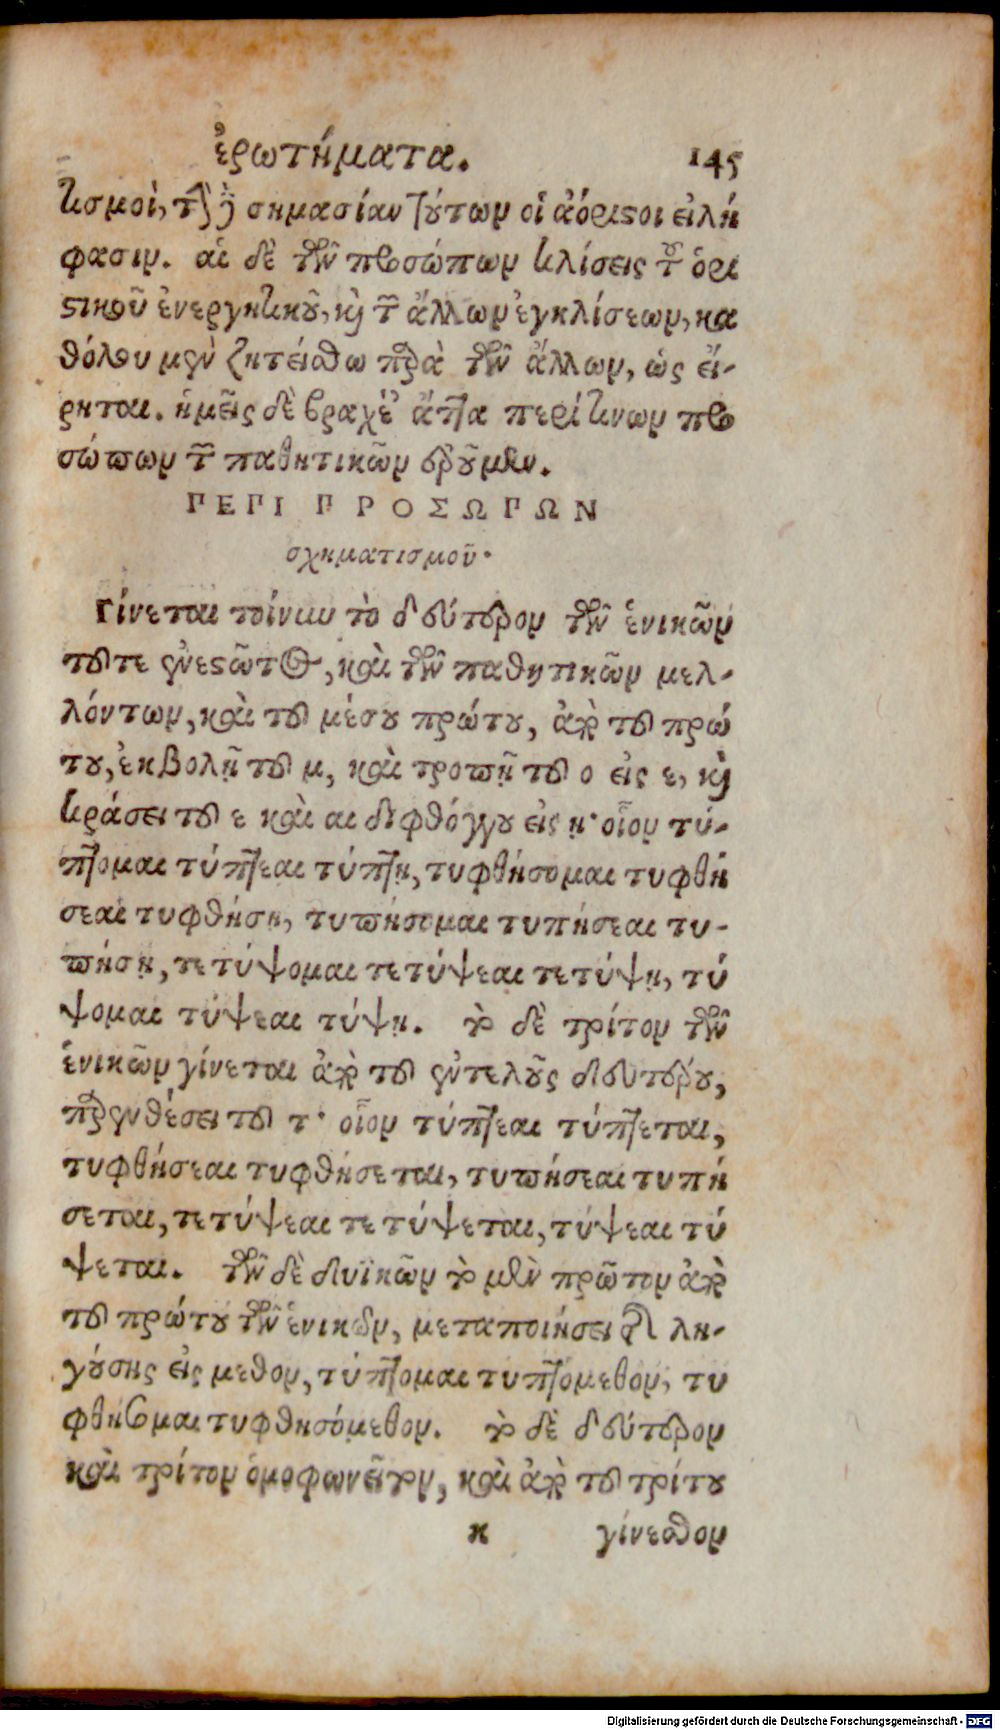 ἐρωτήματα. 145
τισμοὶ, τὴν δὲ σημασίαν τούτων οἱ ἀόριστοι εἰλή
φασιν. αἱ δὲ τῶν προσώπων κλίσεις τοῦ ὁρι
στικοῦ ἐνεργητικοῦ, καὶ τῶν ἄλλων ἐγκλίσεων, κα
θόλου μὲν ζητείσθω παρὰ τῶν ἄλλων, ὡς εἴ-
ρηται. ἡμεῖς δὲ βραχέ᾽ ἄττα περί τινων προ
σώπων τῶν παθητικῶν ἐροῦμεν.
ΠΕΡΙ ΠΡΟΣΩΠΩΝ
σχηματισμοῦ.
Γίνεται τοίνυν τὸ δεύτερον τῶν ἑνικῶν
τοῦτε ἐνεστῶτος, καὶ τῶν παθητικῶν μελ-
λόντων, καὶ τοῦ μέσου πρώτου, ἀπὸ τοῦ πρώ
του, ἐκβολῇ τοῦ μ, καὶ τροπῇ τοῦ ο εἰς ε, καὶ
κράσει τοῦ ε καὶ αι διφθόγγου εἰς ῃ· οἷον τύ-
πτομαι τύπτεαι τύπτῃ, τυφθήσομαι τυφθή
σεαι τυφθήσῃ, τυπήσομαι τυπήσεαι τυ-
πήσῃ, τετύψομαι τετύψεαι τετύψῃ, τύ
ψομαι τύψεαι τύψῃ. τὸ δὲ τρίτον τῶν
ἑνικῶν γίνεται ἀπὸ τοῦ ἐντελοῦς δευτέρου,
παρενθέσει τοῦ τ· οἷον τύπτεαι τύπτεται,
τυφθήσεαι τυφθήσεται, τυπήσεαι τυπή
σεται, τετύψεαι τετύψεται, τύψεαι τύ
ψεται. τῶν δὲ δυϊκῶν τὸ μὲν πρῶτον ἀπὸ
τοῦ πρώτου τῶν ἑνικῶν, μεταποιήσει τῆς λη-
γούσης εἰς μεθον, τύπτομαι τυπτόμεθον, τυ
φθήσομαι τυφθησόμεθον. τὸ δὲ δεύτερον
καὶ τρίτον ὁμοφωνεῖτον, καὶ ἀπὸ τοῦ τρίτου
κ γίνεσθον
Digitalisierung gefördert durch die Deutsche Forschungsgemeinschaft - DFG